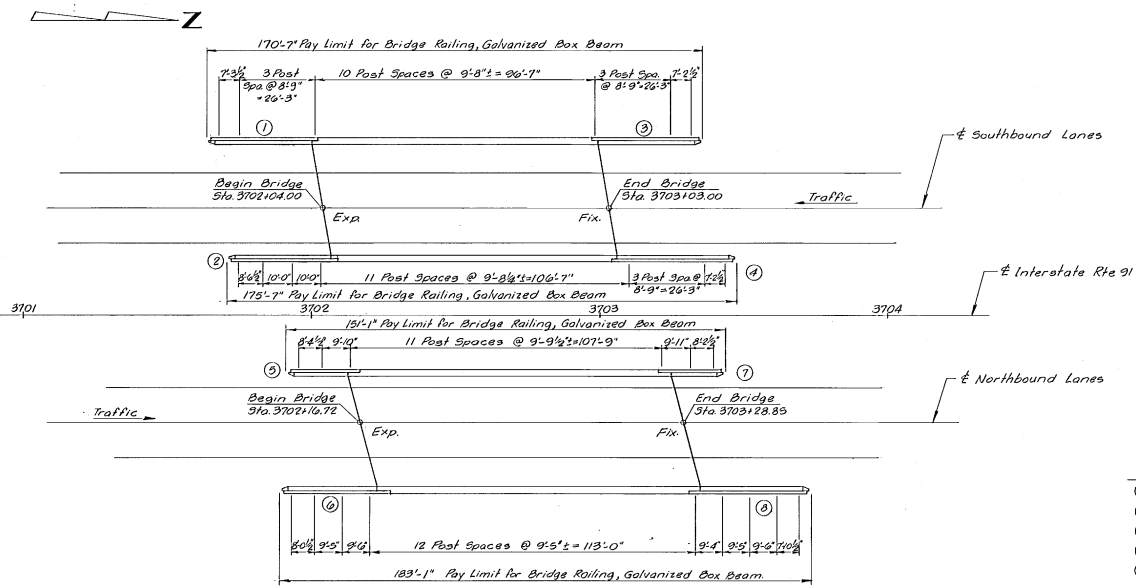 Z
170'-7" Pay Limit for Bridge Railing, Galvanized Box Beam
7'-3½"
3 Post
Spa. @ 8'-9"
= 26'-3"
10 Post Spaces @ 9'-8"± = 96'-7"
3 Post Spa.
@ 8'-9"=26'-3"
7'-2½"
1
3
℄ Southbound Lanes
Begin Bridge
Sta. 3702+04.00
End Bridge
Sta. 3703+03.00
Traffic
Exp.
Fix.
2
4
8'-6½"
10'-0"
10'-0"
11 Post Spaces @ 9'-8¼"±=106'-7"
3 Post Spa @
8'-9"=26'-3"
7'-2½"
175'-7" Pay Limit for Bridge Railing, Galvanized Box Beam
℄ Interstate Rte 91
3701
3702
3703
3704
151'-1" Pay Limit for Bridge Railing, Galvanized Box Beam
8'-4½"
9'-10"
11 Post Spaces @ 9'-9½"±=107'-9"
9'-11"
8'-2½"
5
7
℄ Northbound Lanes
Begin Bridge
Sta. 3702+16.72
End Bridge
Sta. 3703+28.85
Traffic
Exp.
Fix.
6
8
8'-0½"
9'-5"
9'-6"
12 Post Spaces @ 9'-5"± = 113'-0"
9'-4"
9'-5"
9'-6"
7'-10½"
183'-1" Pay Limit for Bridge Railing, Galvanized Box Beam.